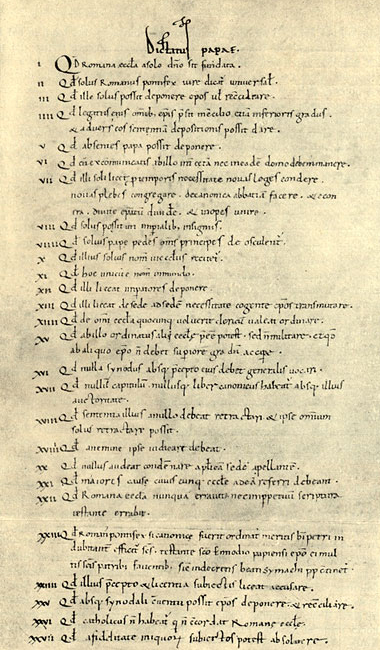 Dictatus papae.
I Qd Romana eccła a solo dño sit fundata.
II Qd solus Romanus pontifex iure dicat̃ universał.
III Qd ille solus possit deponere epõs ul reciłiare.
IIII Qd legatus eius omnib; epis p̃sit in ccilio etiã inferioris gradus.
& adversus eos sententiã depositionis possit dare.
V Qd absentes papa possit deponere.
VI Qd cũ excomunicatis ab illo int̃ cetã nec in eadẽ domo debem manere.
VII Qd illi soli licet p temporis necessitate novas leges condere
novas plebes congregare. de canonica abbatiam facere. & e con
tra. divitẽ epatũ divid̃e. & inopes unire.
VIII Qd solus possit uti impialib; insigniis.
VIIII Qd solius pape pedes om̃s principes deosculent̃.
X Qd illius solius nom̃ in eccłiis recitet̃.
XI Qd hoc unicũ ẽ nom̃ in mundo.
XII Qd illi liceat imp̃atores deponere.
XIII Qd illi liceat de sede ad sedẽ necessitate cogente epõs transmutare.
XIIII Qd de om̃i eccła quocunq; voluerit clericũ valeat ordinare.
XV Qd ab illo ordinatus alii eccłe p̃ee potest. sed ñ militare. et qđ
ab aliquo epo ñ debet supiorẽ gradũ accip̃e.
XVI Qd nulla synodus absq; p̃cepto eius debet̃ generalis vocari.
XVII Qd nullũ capitulũ nullusq; liber canonicus habeat̃ absq; illius
auctoritate.
XVIII Qd sententia illius a nullo debeat retractari. & ipse omnium
solus retractare possit.
XVIIII Qd a nemine ipse iudicari debeat.
XX Qd nullus audeat condẽnare ap̃licã sedẽ apellantẽ.
XXI Qd maiores cause cuiuscunq; eccłe ad eã referri debeant.
XXII Qd Romana eccła nunquã erravit nec imppetuũ scriptura
testante errabit.
XXIII Qd Roman̾ pontifex si canonice fuerit ordinat̾ meritis b̃i petri in
dubitant̃ efficit̃ scs̃. testante sco Ennodio papiensi epo ei mul
tis scis patrib; faventib; sic̃ in decretis beati symachi pp̃ cõtinet̃.
XXIIII Qd illius p̃cepto & licentia subiectis liceat accusare.
XXV Qd absq; synodali cventu possit epõs deponere & recciliare.
XXVI Qd catholicus ñ habeat̃ qui ñ ccordat Romane eccłe.
XXVII Qd a fidelitate iniquoꝝ subiectos potest absolvere.